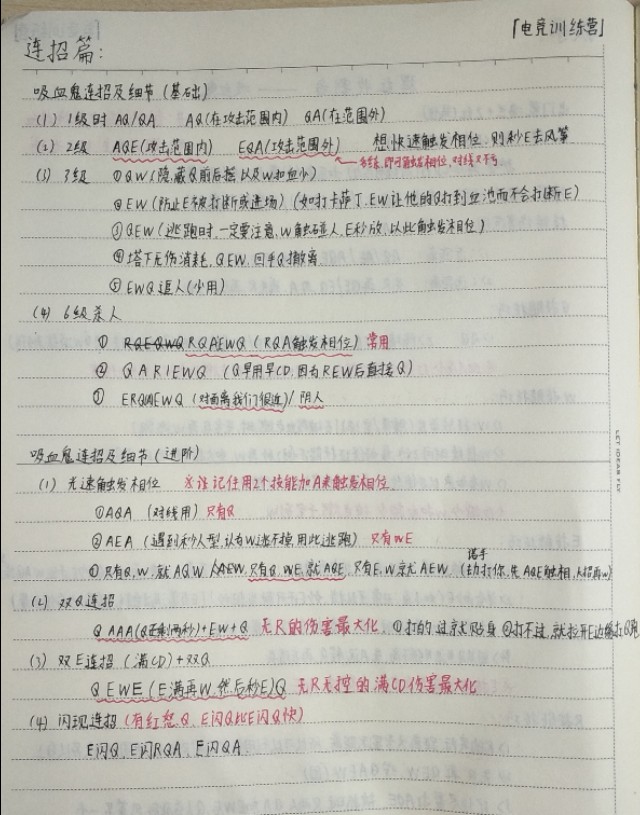 「电竞训练营」
连招篇:
吸血鬼连招及细节(基础)
(1) 1级时 AQ/QA AQ(在攻击范围内) QA(在范围外)
(2) 2级 AQE(攻击范围内) EQA(攻击范围外) 想快速触发相位 则秒E去风筝
(3) 3级 ①QW(隐蔽Q前后摇以及W扣血少)
②EW(防止E被打断或进场)(如打卡萨丁,EW让他的Q打到血池而不会打断E)
③QEW(逃跑时,一定要注意,W触碰人,E秒放,以此触发相位)
④塔下无伤消耗,QEW,回手Q撤离
⑤EWQ追人(少用)
(4) 6级杀人
① RQEQWQ RQAEWQ (RQA触发相位) 常用
② QARIEWQ (Q早用早CD,因为REW后直接Q)
③ ERQAEWQ (对面离我们很近)/阴人
吸血鬼连招及细节(进阶)
(1) 光速触发相位 ※谨记住用2个技能加A来触发相位
①AQA (对线用) 只有Q
②AEA (遇到秒人型,认为W逃不掉,用此逃跑) 只有WE
③只有Q,W,就AQW 只有Q,WE,就AQE,只有E,W就AEW
(2) 双Q连招
Q AAA(Q还剩1两秒)+EW+Q 无R的伤害最大化, ①打的过就贴身 ②打不过,就拉开E边
(3) 双E连招(满CD)+双Q
Q EWE(E满再W,然后秒E)Q 无R无控的满CD伤害最大化
(4) 闪现连招(有红怒Q,E闪Q比E闪Q快)
E闪Q、E闪RQA、E闪QA
LET IDEAR FLY